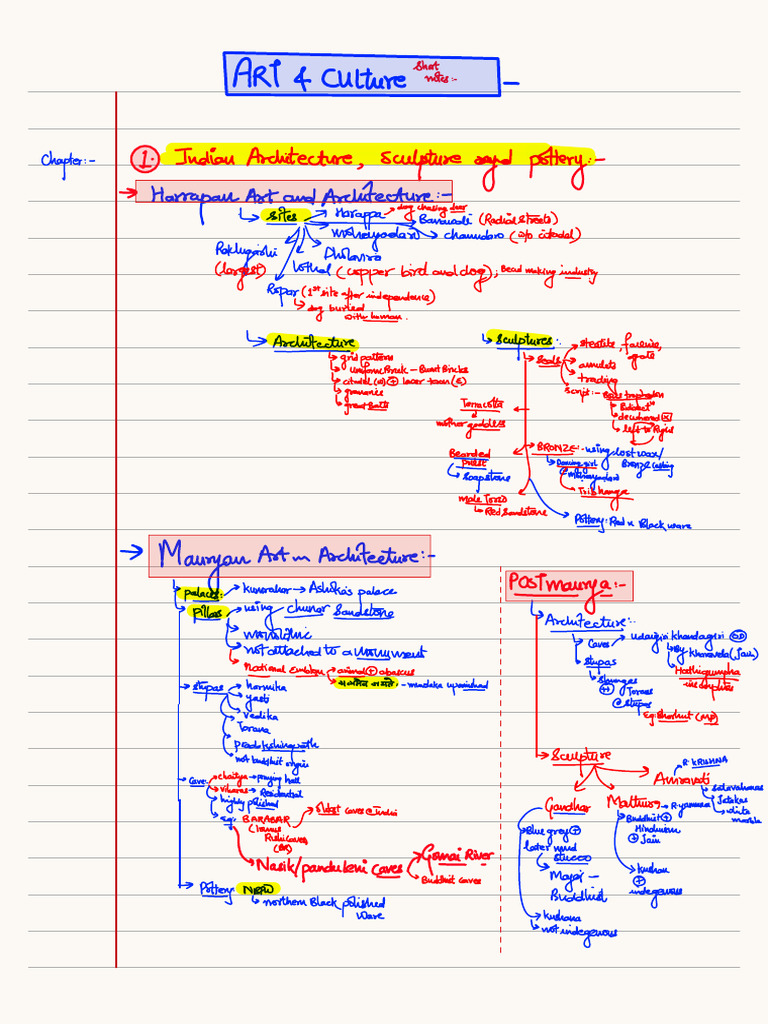 ART & Culture Short notes:-
Chapter:-
1. Indian Architecture, Sculpture and pottery:-
Harrapan Art and Architecture:-
sites
Harappa
dog chasing deer
Banawali (Radial Streets)
chanudaro (w/o citadel)
Rakhigarhi
(largest)
Dholavira
lothal (copper bird and dog); Bead making industry
Ropar (1st site after independence)
dog buried
with human.
Architecture
grid pattern
uniform Brick - Burnt Bricks
citadel (w) + lower town (E)
granaries
great bath
Sculptures:-
Seals
steatite, faience, agate
amulets
trading
script:-
left to Right
Terracotta
mother goddess
Bearded priest
soapstone
male Torso
Red sandstone
BRONZE:- using lost wax/
Bronze casting
Dancing girl
Tribhanga
Pottery: Red n Black ware
Mauryan Art n Architecture:-
palaces:
kumrahar → Ashoka's palace
Pillars
using chunar Sandstone
monolithic
not attached to a monument
National Emblem
animal + abacus
सत्यमेव जयते - mundaka upanishad
stupas
harmika
yasti
vedika
Torana
pradakshinapath
not buddhist origin
Cave:
chaitya → praying hall
viharas → Residential
highly polished
eg:- BARABAR
(BR)
oldest caves @ India
Nasik/panduleni caves
Gomai River
Buddhist caves
Pottery: NBPW
northern Black polished
ware
Post maurya:-
Architecture:-
Caves
udaigiri khandagiri
By kharavela (jain)
Hathigumpha
inscription
stupas
shungas
++ Toranas
@ stupas
Eg: Bharhut (MP)
Sculpture
Gandhar
Blue grey +
later mud
stucco
Major -
Buddhist
kushana
not indegenous
Mathura
R. yamuna
Buddhist +
Hinduism
+ Jain
kushan
+
indegenous
Amravati
R. KRISHNA
satavahanas
Jatakas
white marble